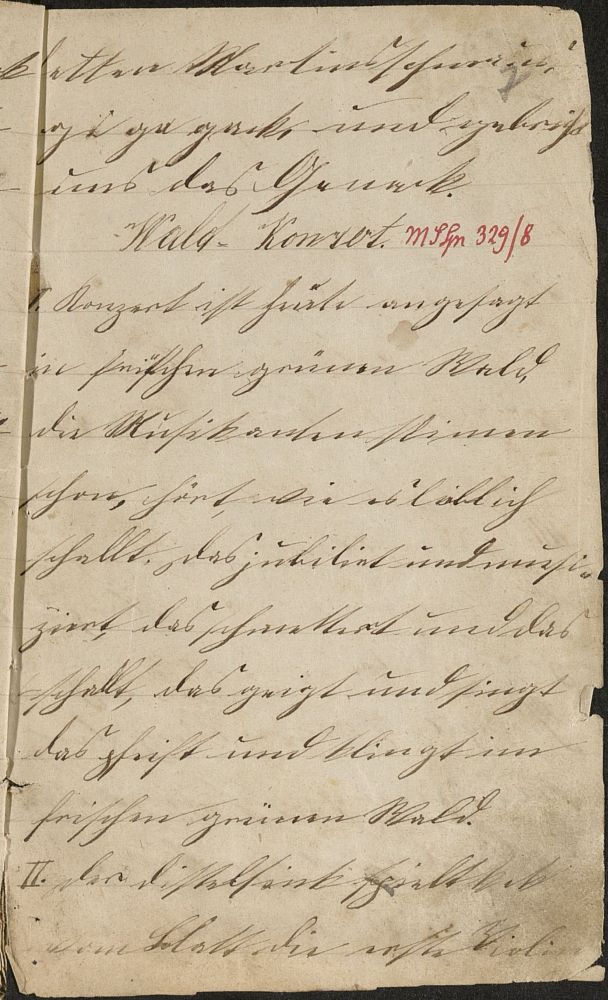 fetten Martinsschmaus,
gi ga gack, und gebricht
uns das Genack.
Wald-Konzert. MSGn 329/8
I. Konzert ist heute angesagt
in frischen grünen Wald,
die Musikanten stimen
schon, hört, wie es lieblich
schallt. Das jubiliert und musi-
ziert, das schmettert und das
schallt, das geigt und singt
das pfeift und klingt im
frischen grünen Wald.
II. Der Distelfink spielt
vom Blatt die erste Violin